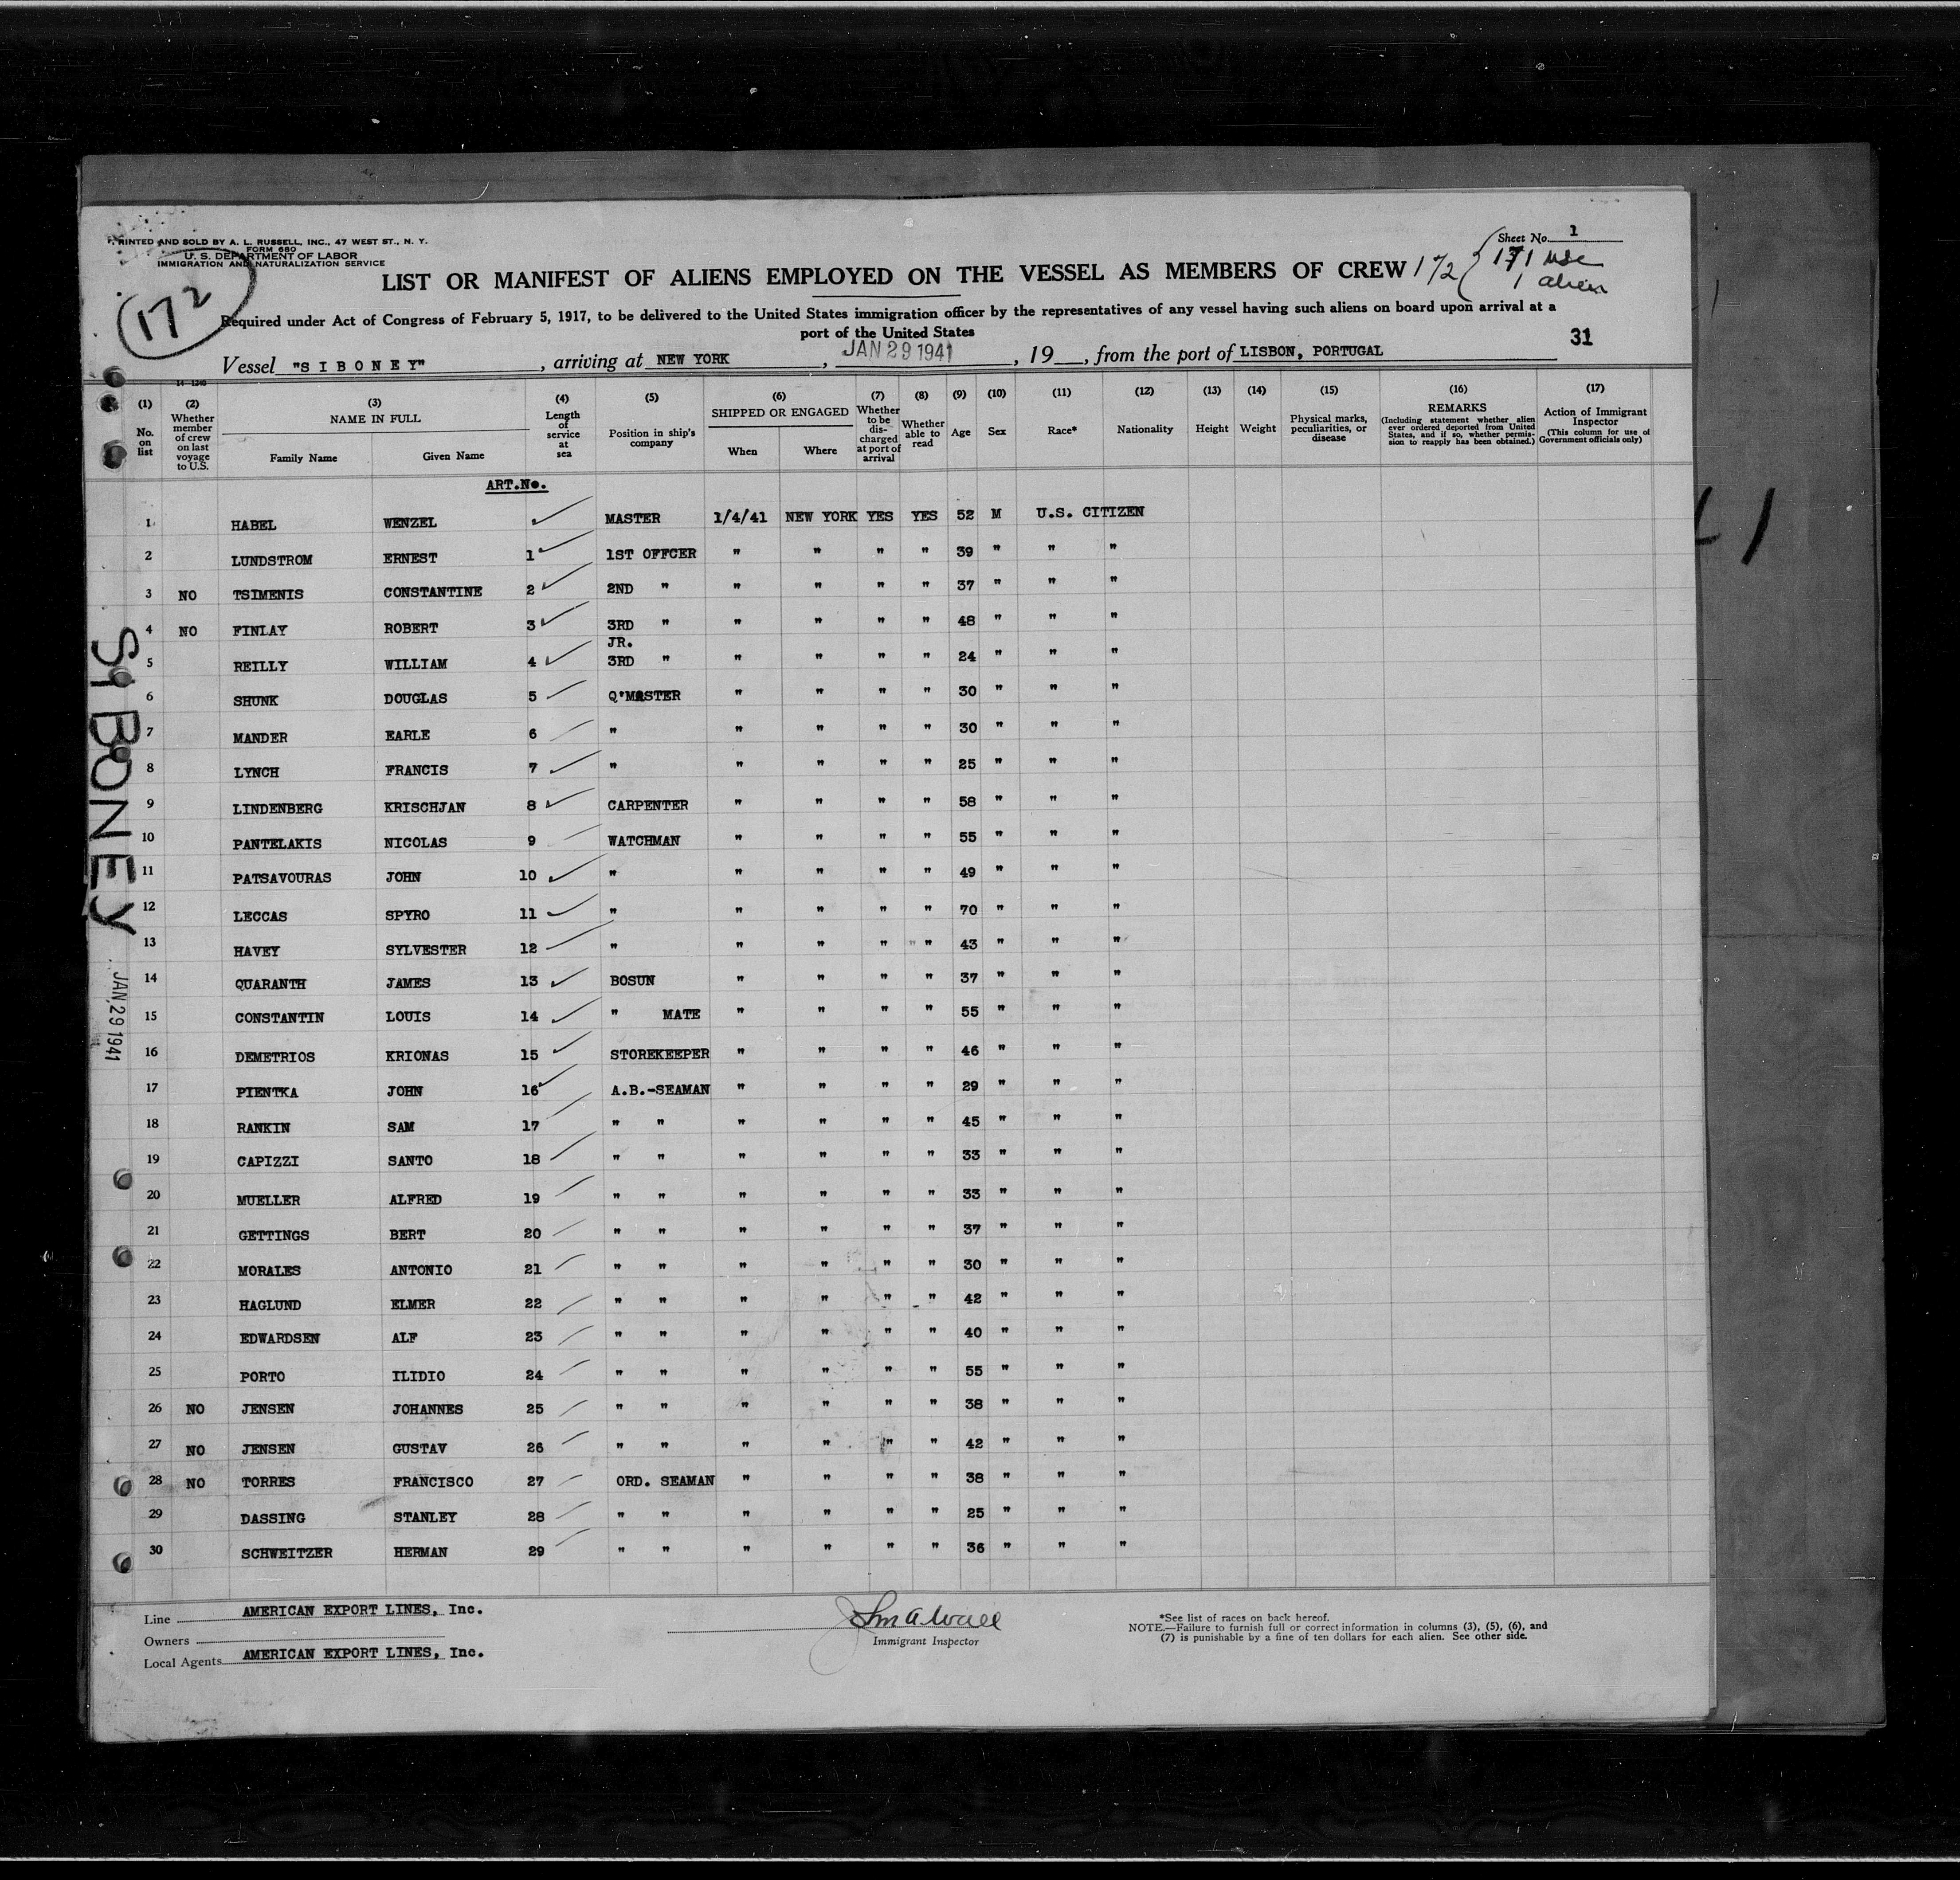 PRINTED AND SOLD BY A. L. RUSSELL, INC., 47 WEST ST., N. Y.
FORM 680
U. S. DEPARTMENT OF LABOR
IMMIGRATION AND NATURALIZATION SERVICE
172
Sheet No. 1
LIST OR MANIFEST OF ALIENS EMPLOYED ON THE VESSEL AS MEMBERS OF CREW
172 { 171 usc
1 alien
Required under Act of Congress of February 5, 1917, to be delivered to the United States immigration officer by the representatives of any vessel having such aliens on board upon arrival at a
port of the United States
31
Vessel "SIBONEY", arriving at NEW YORK, JAN 29 1941, 19__, from the port of LISBON, PORTUGAL
14-1240
(1) (2) (3) (4) (5) (6) (7) (8) (9) (10) (11) (12) (13) (14) (15) (16) (17)
No. on list
Whether member of crew on last voyage to U.S.
NAME IN FULL
Family Name Given Name
Length of service at sea
Position in ship's company
SHIPPED OR ENGAGED
When Where
Whether to be discharged at port of arrival
Whether able to read
Age
Sex
Race*
Nationality
Height
Weight
Physical marks, peculiarities, or disease
REMARKS
(Including statement whether alien ever ordered deported from United States, and if so, whether permission to reapply has been obtained.)
Action of Immigrant Inspector
(This column for use of Government officials only)
ART.No.
1 HABEL WENZEL MASTER 1/4/41 NEW YORK YES YES 52 M U.S. CITIZEN
2 LUNDSTROM ERNEST 1 1ST OFFCER " " " " 39 " " "
3 NO TSIMENIS CONSTANTINE 2 2ND " " " " " 37 " " "
4 NO FINLAY ROBERT 3 3RD " " " " " 48 " " "
JR.
5 REILLY WILLIAM 4 3RD " " " " " 24 " " "
6 SHUNK DOUGLAS 5 Q'MASTER " " " " 30 " " "
7 MANDER EARLE 6 " " " " " 30 " " "
8 LYNCH FRANCIS 7 " " " " " 25 " " "
9 LINDENBERG KRISCHJAN 8 CARPENTER " " " " 58 " " "
10 PANTELAKIS NICOLAS 9 WATCHMAN " " " " 55 " " "
11 PATSAVOURAS JOHN 10 " " " " " 49 " " "
12 LECCAS SPYRO 11 " " " " " 70 " " "
13 HAVEY SYLVESTER 12 " " " " " 43 " " "
14 QUARANTH JAMES 13 BOSUN " " " " 37 " " "
15 CONSTANTIN LOUIS 14 " MATE " " " " 55 " " "
16 DEMETRIOS KRIONAS 15 STOREKEEPER " " " " 46 " " "
17 PIENTKA JOHN 16 A.B.-SEAMAN " " " " 29 " " "
18 RANKIN SAM 17 " " " " " " 45 " " "
19 CAPIZZI SANTO 18 " " " " " " 33 " " "
20 MUELLER ALFRED 19 " " " " " " 33 " " "
21 GETTINGS BERT 20 " " " " " " 37 " " "
22 MORALES ANTONIO 21 " " " " " " 30 " " "
23 HAGLUND ELMER 22 " " " " " " 42 " " "
24 EDWARDSEN ALF 23 " " " " " " 40 " " "
25 PORTO ILIDIO 24 " " " " " " 55 " " "
26 NO JENSEN JOHANNES 25 " " " " " " 38 " " "
27 NO JENSEN GUSTAV 26 " " " " " " 42 " " "
28 NO TORRES FRANCISCO 27 ORD. SEAMAN " " " " 38 " " "
29 DASSING STANLEY 28 " " " " " " 25 " " "
30 SCHWEITZER HERMAN 29 " " " " " " 36 " " "
SIBONEY
JAN 29 1941
Line AMERICAN EXPORT LINES, Inc.
Owners
Local Agents AMERICAN EXPORT LINES, Inc.
Immigrant Inspector
*See list of races on back hereof.
NOTE.—Failure to furnish full or correct information in columns (3), (5), (6), and
(7) is punishable by a fine of ten dollars for each alien. See other side.